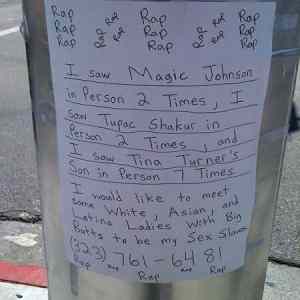 Rap Rap Rap Rap Rap
Rap Rap Rap Rap Rap
Rap Rap Rap Rap Rap
I saw Magic Johnson
in Person 2 Times, I
saw Tupac Shakur in
Person 2 Times, and
I saw Tina Turner's
Son in Person 7 Times
I would like to meet
some White, Asian, and
Latino Ladies With Big
Butts to be my Sex Slaves
(323) 761-6481
Rap Rap Rap
Rap